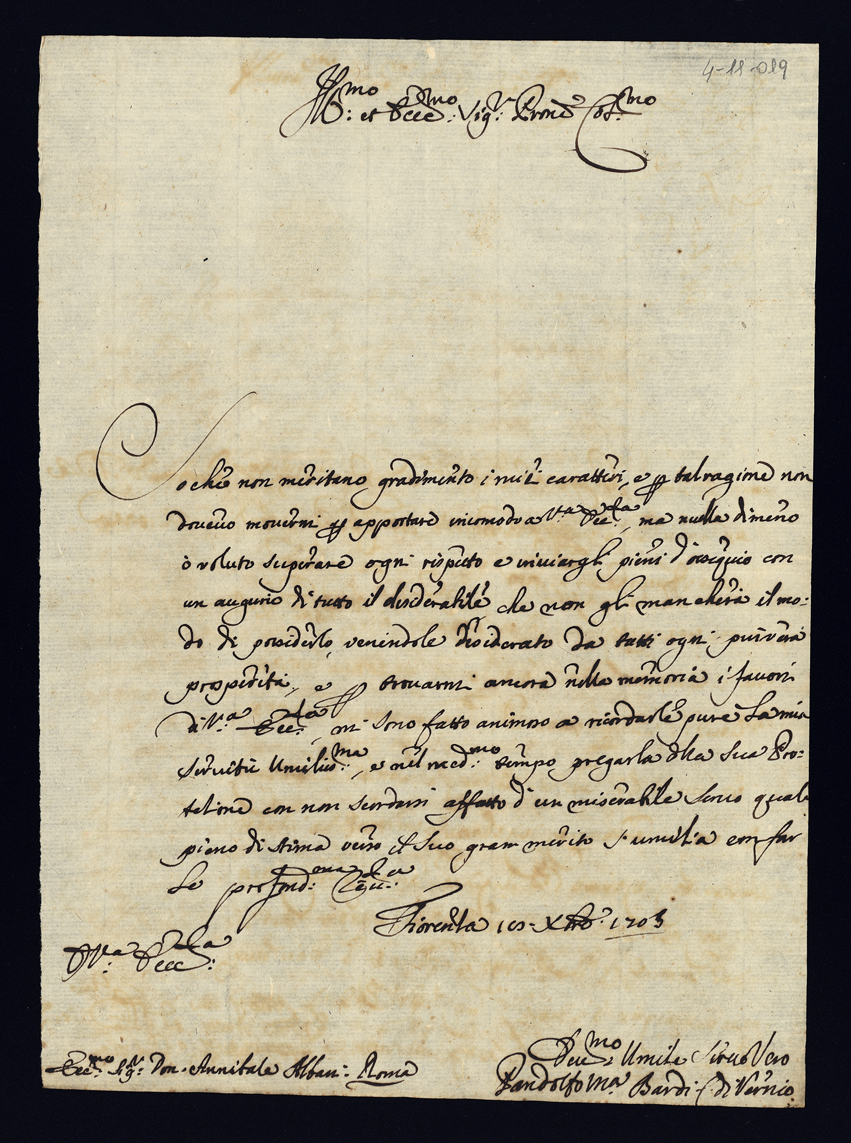 4-11-019
Ill.mo et Ecc.mo Sig.r Prone Col.mo
So che non meritano gradimento i miei caratteri, e p tal ragione non
dovevo movermi p apportare incomodo a V.ra Ecc.za, ma nulla dimeno
ò voluto superare ogni rispetto e inviargli pieni d'ossequio con
un augurio di tutto il desiderabile che non gli mancherà il mo:
do di possederlo, venendole desiderato da tutti ogni più vera
prosperità, e p trovarmi ancora nella memoria i favori
di V.a Ecc.za, mi sono fatto animoso a ricordarle pure La mia
servitù Umiliss.ma, e nel med.mo tempo pregarla della sua Pro:
tetione con non scordarsi affatto d'un miserabile Servo quale
pieno di stima verso il suo gran merito s'umilia con far
Le profond.ma
Fiorenza Xbre 1703
D V.a Ecc.za
Ecc.mo Sig.r Don Annibale Albani: Roma
Dev.mo Umile Servo Vero
Pandolfo M.a Bardi di Vernio